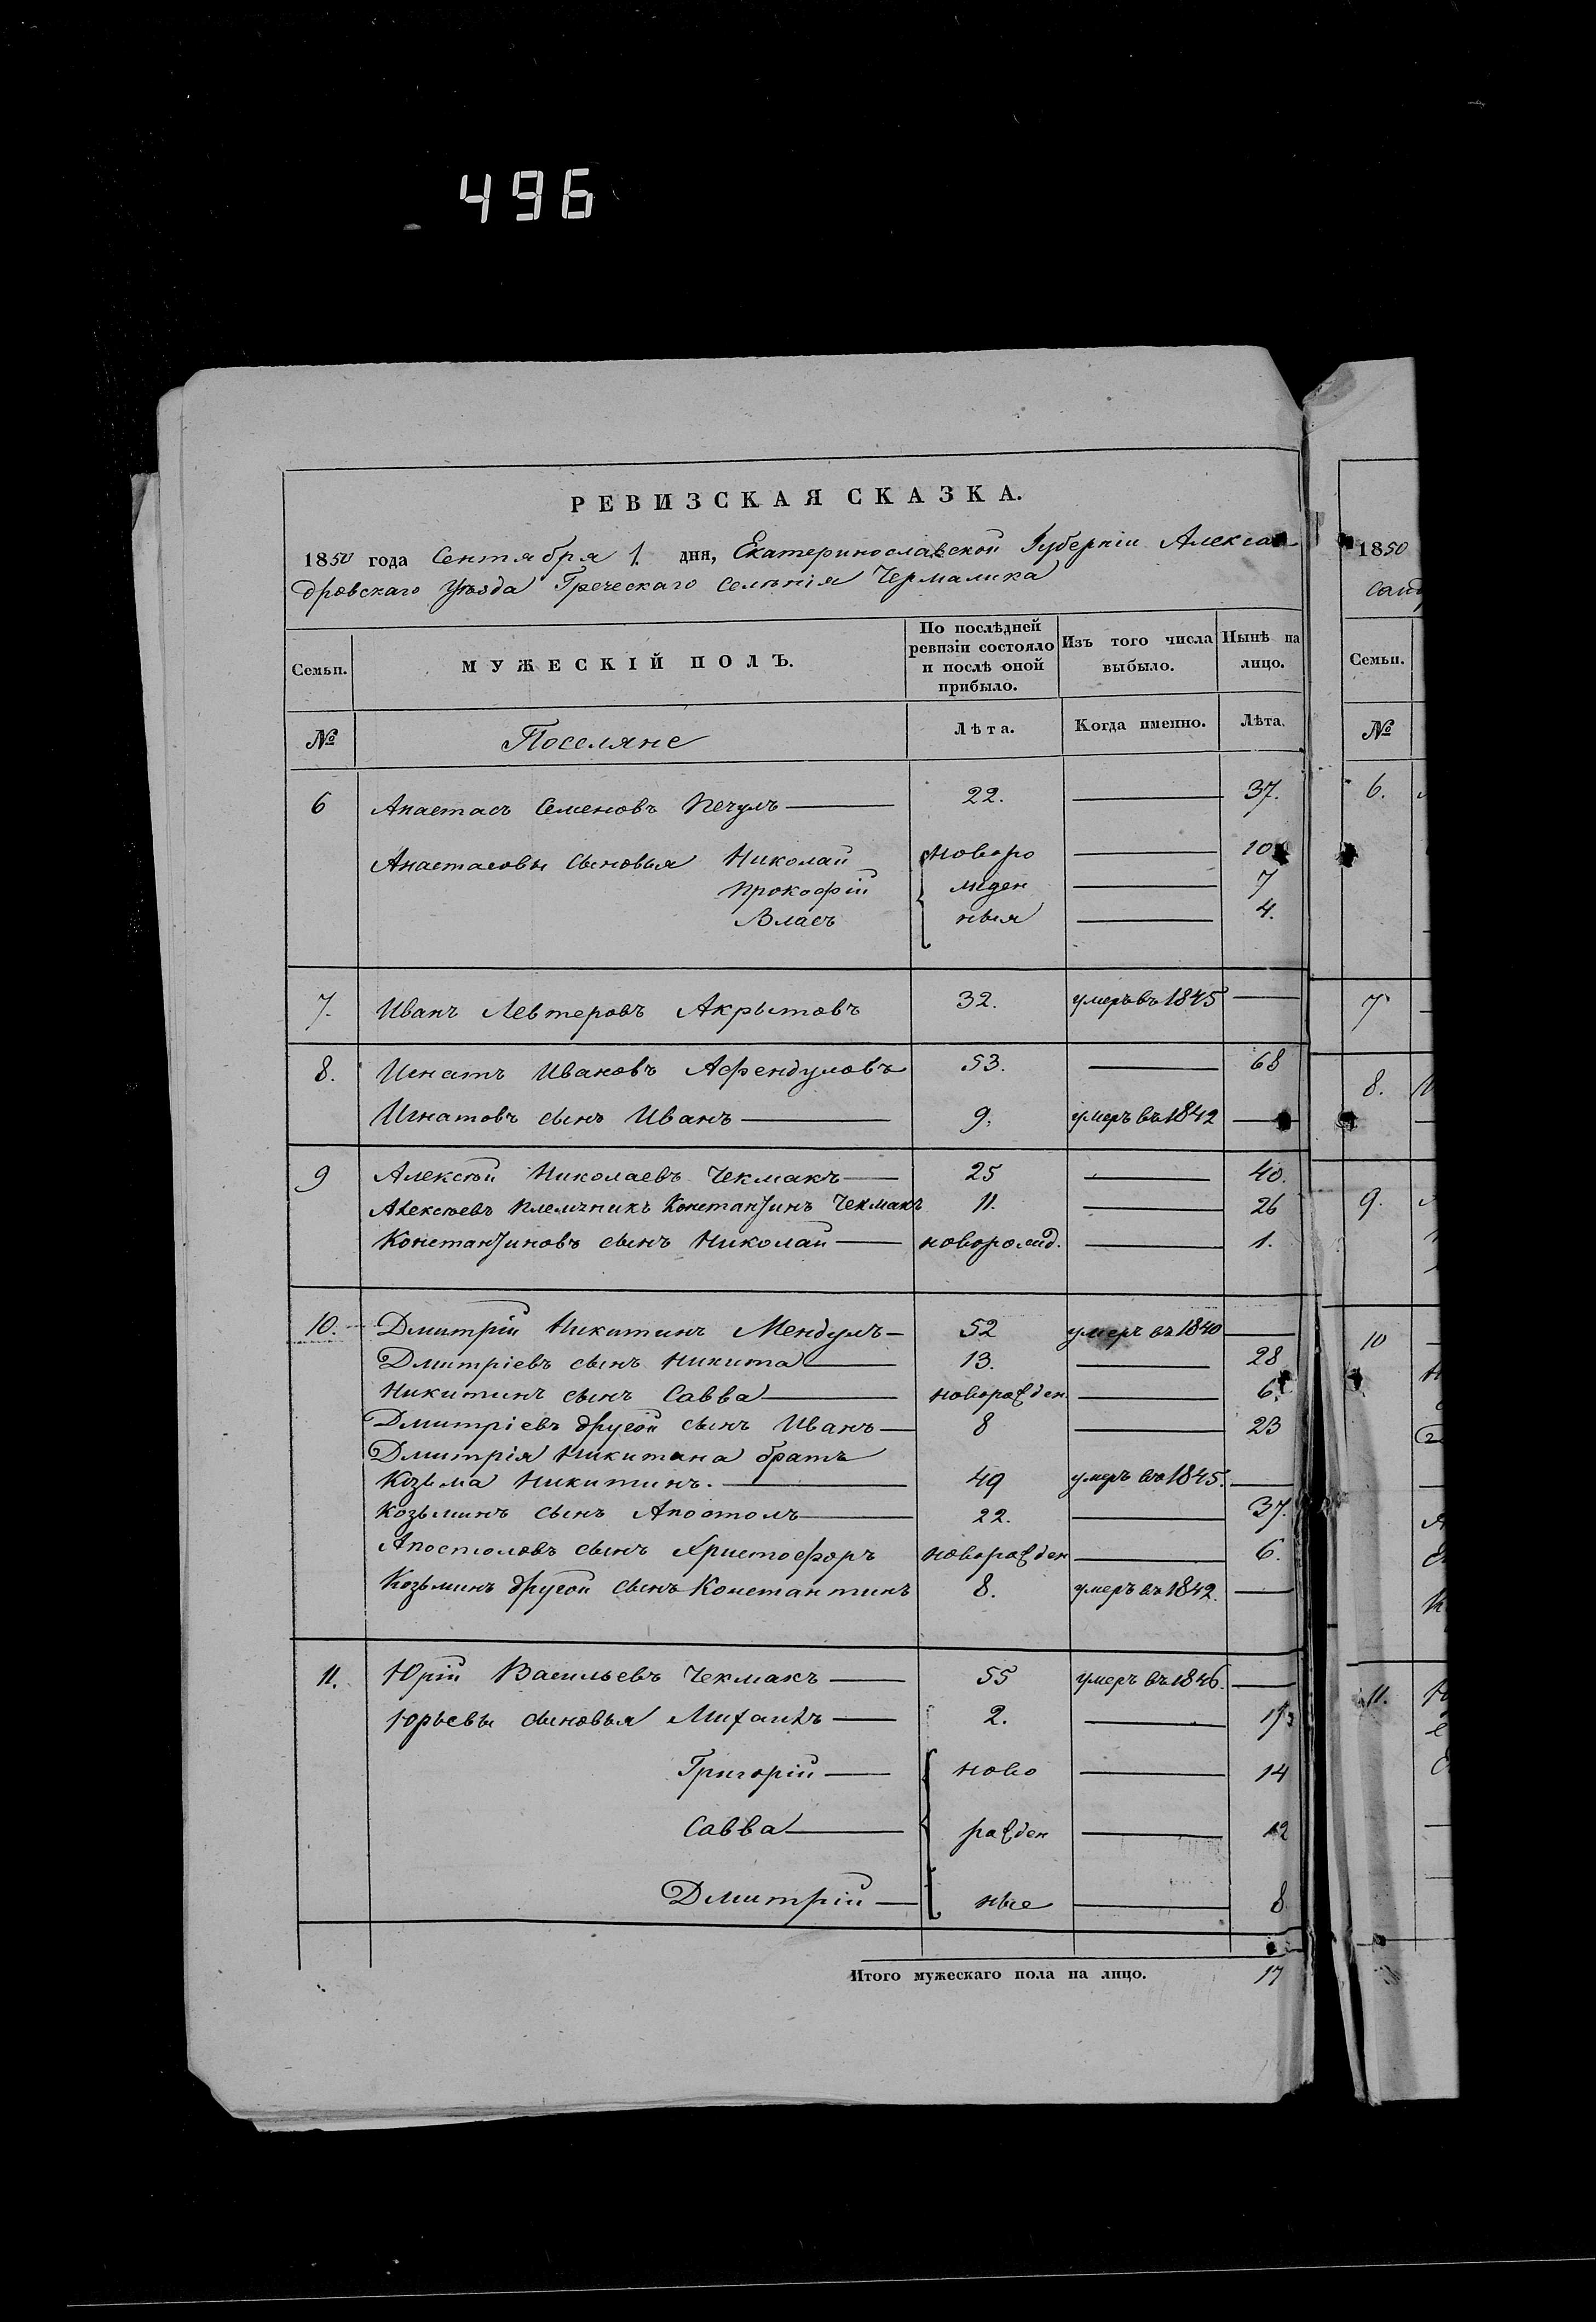 496
РЕВИЗСКАЯ СКАЗКА.
1850 года Сентября 1. дня, Екатеринославской Губерніи Алексан-
дровскаго Уѣзда Греческаго Селенія Чермалика
Семьи. МУЖЕСКІЙ ПОЛЪ. По послѣдней ревизіи состояло и послѣ оной прибыло. Изъ того числа выбыло. Нынѣ на лицо.
№ Поселяне Лѣта. Когда именно. Лѣта.
6 Анастасъ Семеновъ Печулъ — 22. — 37.
Анастасовы сыновья Николай новоро — 10
Прокофій жден — 7
Власъ ныя — 4.
7. Иванъ Левтеровъ Акрытовъ 32. умеръ въ 1845 —
8. Игнатъ Ивановъ Афендуловъ 53. — 68
Игнатовъ сынъ Иванъ — 9. умеръ въ 1842 —
9 Алексѣй Николаевъ Чекмакъ — 25 — 40.
Алексѣевъ племяникъ Константинъ Чекмакъ 11. — 26
Константиновъ сынъ Николай — новорожд. — 1.
10. Дмитрій Никитинъ Мендулъ — 52 умеръ въ 1840 —
Дмитріевъ сынъ Никита — 13. — 28
Никитинъ сынъ Савва — новорожден. — 6.
Дмитріевъ другой сынъ Иванъ — 8 — 23
Дмитрія Никитина братъ
Козьма Никитинъ. — 49 умеръ въ 1845. —
Козьминъ сынъ Апостолъ — 22. — 37.
Апостоловъ сынъ Христофоръ новорожден — 6.
Козьминъ другой сынъ Константинъ 8. умеръ въ 1842. —
11. Юрій Васильевъ Чекмакъ — 55 умеръ въ 1846. —
Юрьевы сыновья Михаилъ — 2. — 17
Григорій — ново — 14
Савва — рожден — 12
Дмитрій — ные — 8
Итого мужескаго пола на лицо. 17
1850
Семьи.
№
6.
7
8.
9.
10
11.